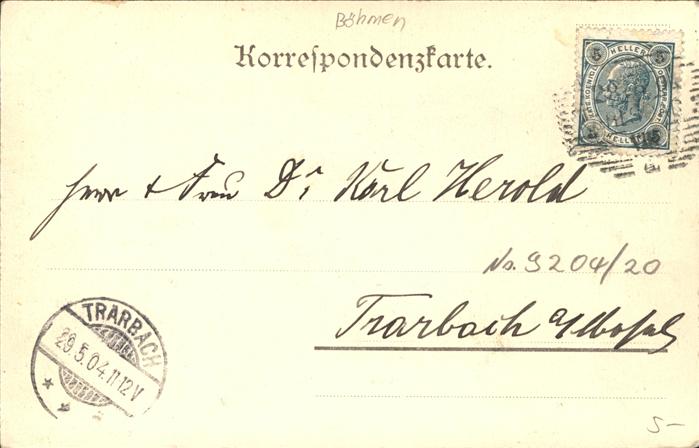 Böhmen
Korrespondenzkarte.
5 HELLER 5
5 HELLER 5
Herr & Frau Dr Karl Herold
No. 9204/20
Trarbach a/Mosel
TRARBACH
29.5.04.11-12V
* *
5-